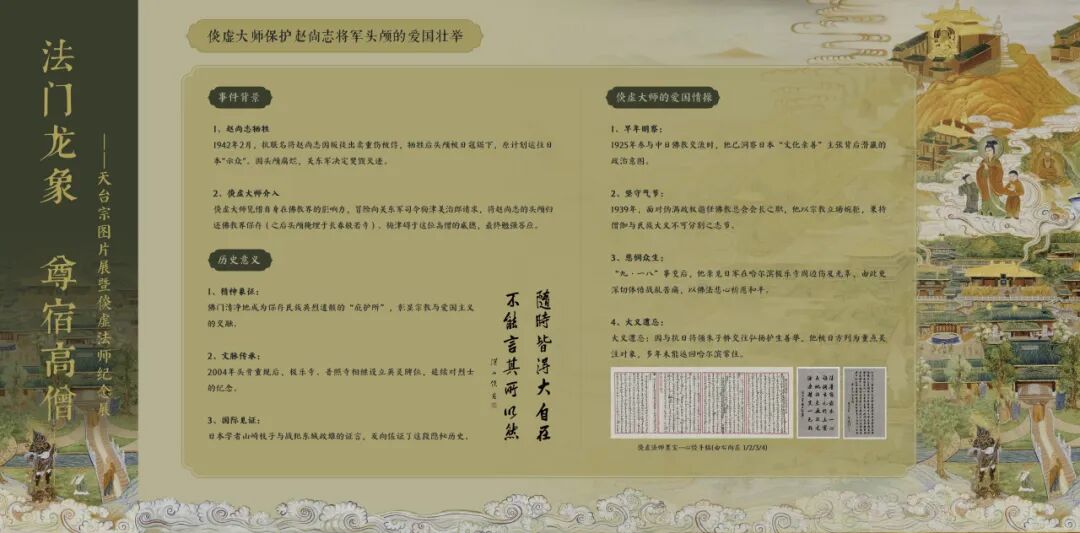 法门龙象 尊宿高僧
——天台宗图片展暨倓虚法师纪念展
倓虚大师保护赵尚志将军头颅的爱国壮举
事件背景
1、赵尚志牺牲
1942年2月，抗联名将赵尚志因叛徒出卖重伤被俘，牺牲后头颅被日寇锯下，原计划运往日
本“示众”。因头颅腐烂，关东军决定焚毁灭迹。
2、倓虚大师介入
倓虚大师凭借自身在佛教界的影响力，冒险向关东军司令梅津美治郎请求，将赵尚志的头颅归
还佛教界保存（之后头颅掩埋于长春般若寺）。梅津碍于这位高僧的威德，最终勉强答应。
历史意义
1、精神象征：
佛门清净地成为保存民族英烈遗骸的“庇护所”，彰显宗教与爱国主义
的交融。
2、文脉传承：
2004年头骨重现后，极乐寺、普照寺相继设立英灵牌位，延续对烈士
的纪念。
3、国际见证：
日本学者山崎枝子与战犯东城政雄的证言，反向佐证了这段隐秘历史。
隨時皆得大自在
不能言其所以然
倓虚大师的爱国情操
1、早年明察：
1925年参与中日佛教交流时，他已洞察日本“文化亲善”主张背后潜藏的
政治意图。
2、坚守气节：
1939年，面对伪满政权邀任佛教总会会长之职，他以宗教立场婉拒，秉持
僧伽与民族大义不可分割之志节。
3、悲悯众生：
“九·一八”事变后，他亲见日军在哈尔滨极乐寺周边伤及无辜，由此更
深切体悟战乱苦痛，以佛法悲心祈愿和平。
4、大义遭忌：
大义遭忌：因与抗日将领朱子桥交往弘扬护生善举，他被日方列为重点关
注对象，多年未能返回哈尔滨常住。
倓虚法师墨宝—心经手稿(由右向左 1/2/3/4)